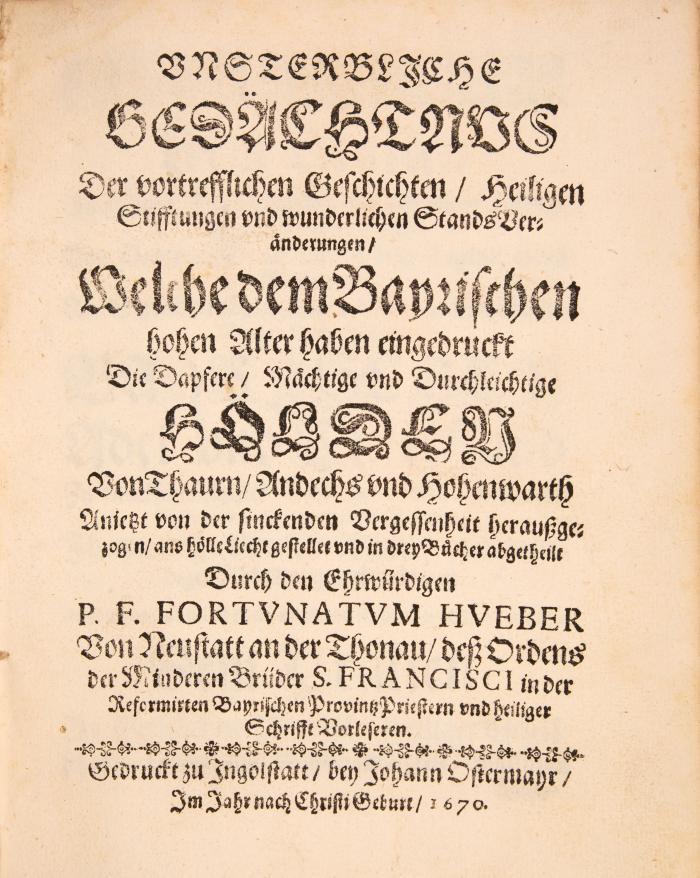 VNSTERBLJCHE
GEDÄCHTNUS
Der vortrefflichen Geschichten / Heiligen
Stifftungen vnd wunderlichen StandsVer-
änderungen /
Welche dem Bayrischen
hohen Alter haben eingedruckt
Die Dapfere / Mächtige vnd Durchleichtige
HÖLDEN
Von Thaurn / Andechs vnd Hohenwarth
Anietzt von der sinckenden Vergessenheit heraußge-
zogen / ans hölle Liecht gestellet vnd in drey Bücher abgetheilt
Durch den Ehrwürdigen
P. F. FORTVNATVM HVEBER
Von Neustatt an der Thonau / deß Ordens
der Minderen Brüder S. FRANCISCI in der
Reformirten Bayrischen Provintz Priestern vnd heiliger
Schrifft Vorleseren.
Gedruckt zu Ingolstatt / bey Johann Ostermayr /
Im Jahr nach Christi Geburt / 1670.